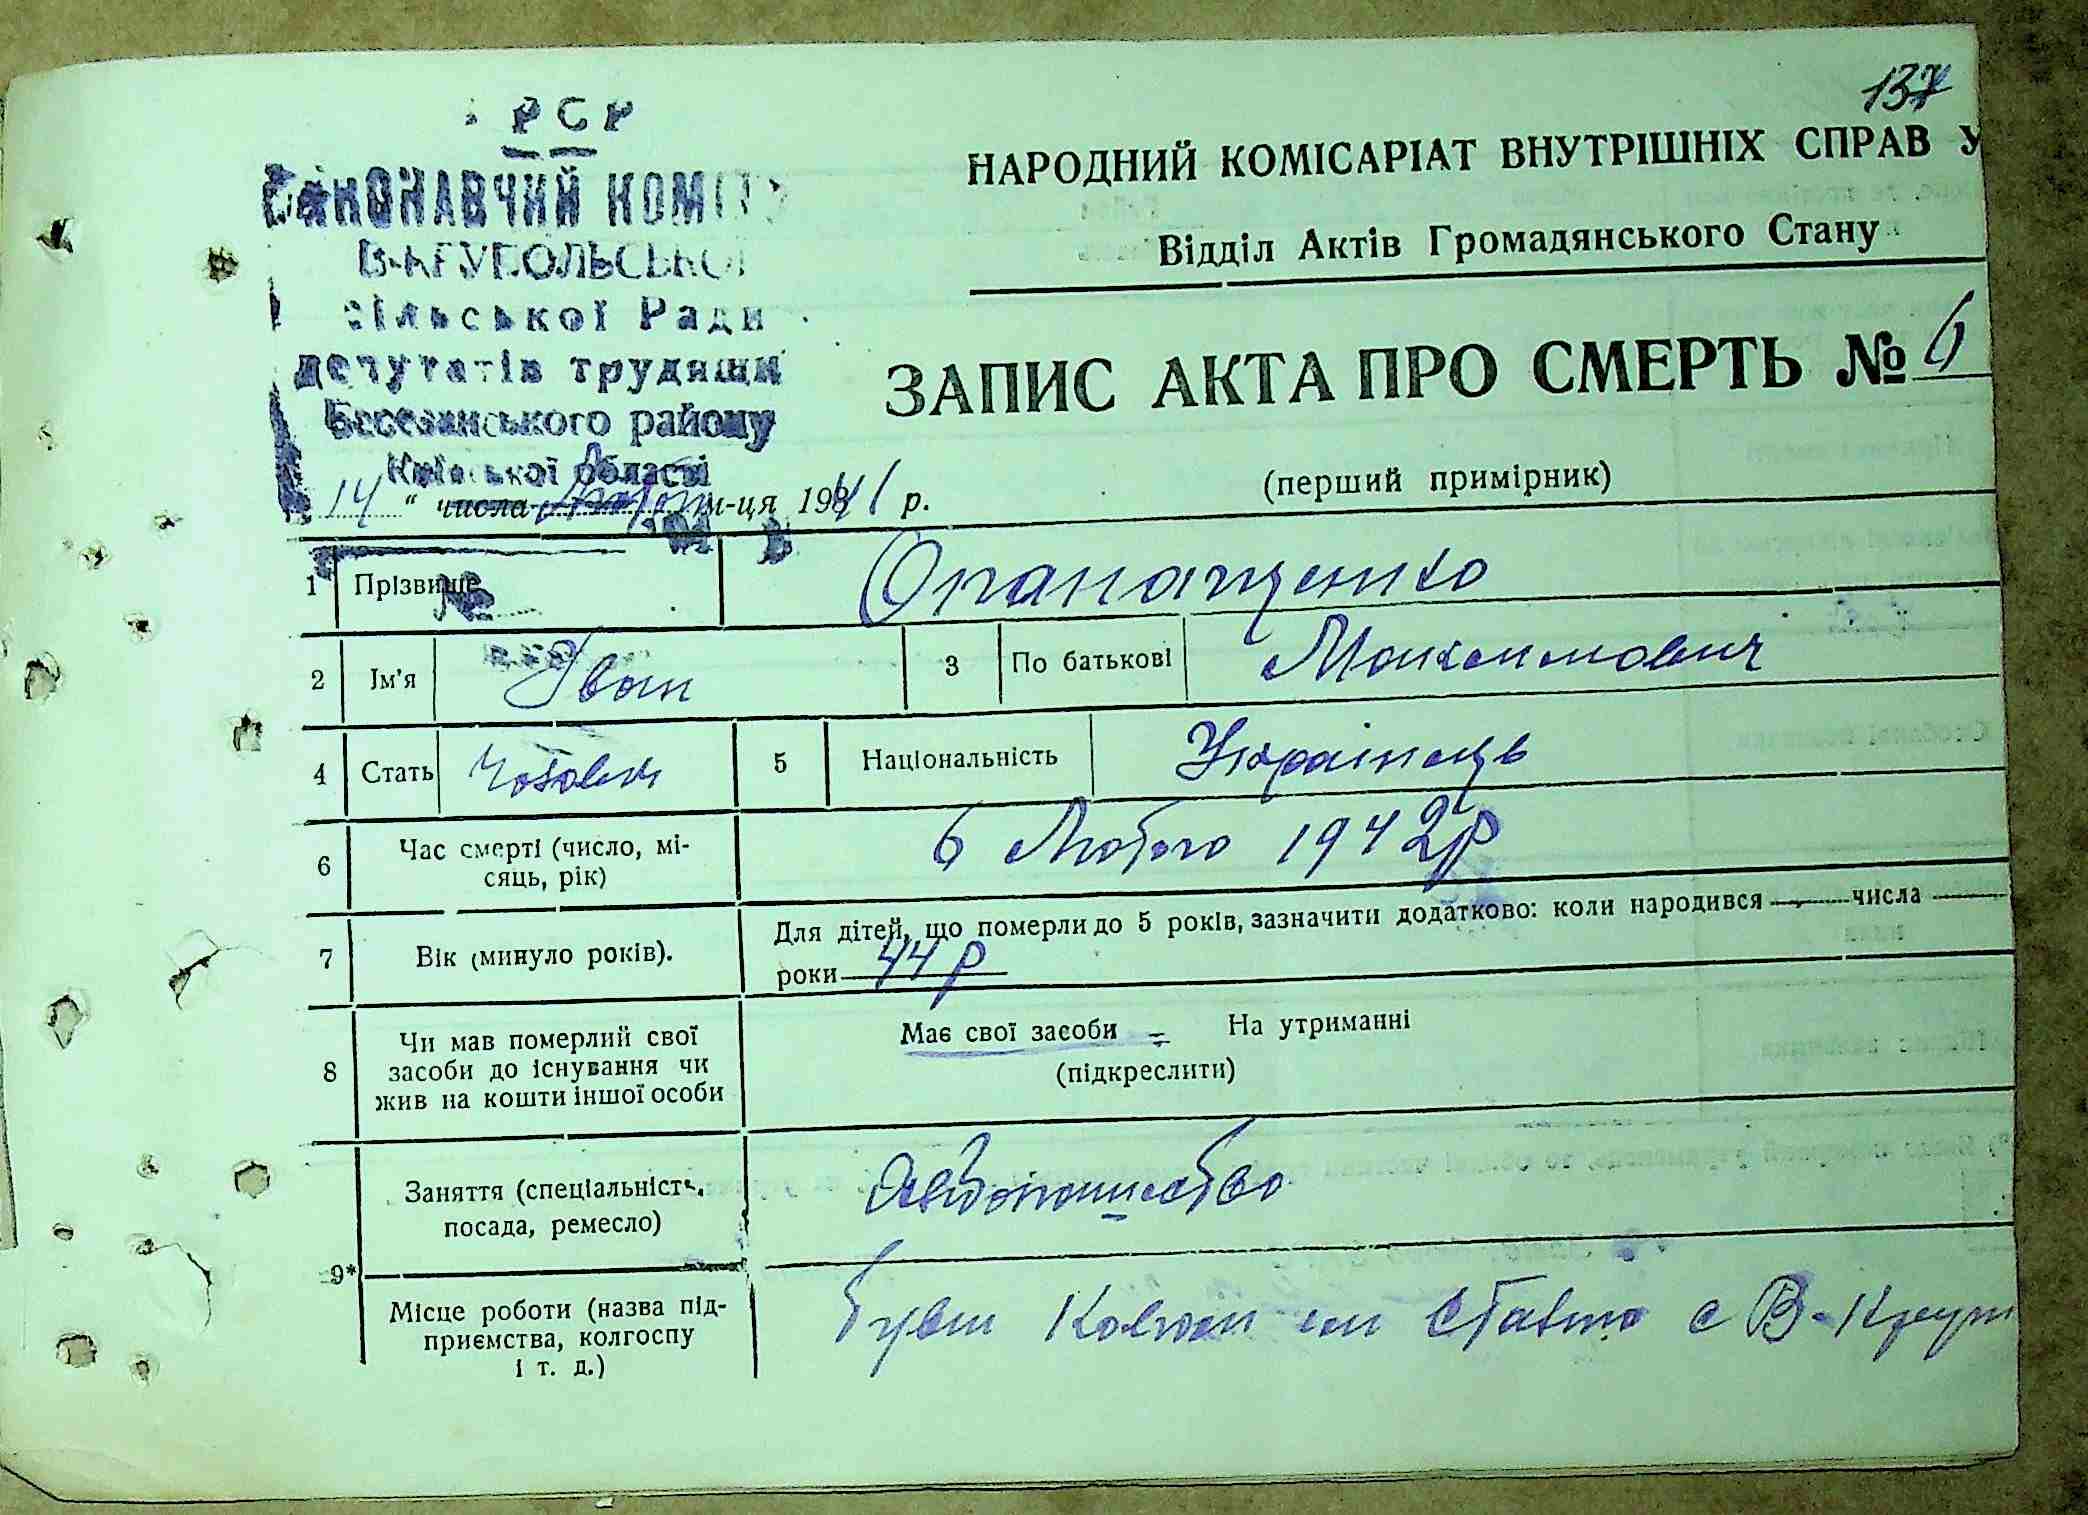 137
РСР
ВИКОНАВЧИЙ КОМІ
сільської Ради
депутатів трудящих
Березанського району
Київської області
НАРОДНИЙ КОМІСАРІАТ ВНУТРІШНІХ СПРАВ У
Відділ Актів Громадянського Стану
ЗАПИС АКТА ПРО СМЕРТЬ № 6
(перший примірник)
14 " числа м-ця 1941 р.
1 Прізвище Опанащенко
№
2 Ім'я Іван 3 По батькові Максимович
4 Стать Чоловіч 5 Національність Українець
6 Час смерті (число, мі-
сяць, рік) 6 Лютого 1942 р
7 Вік (минуло років). Для дітей, що померли до 5 років, зазначити додатково: коли народився числа
роки 44 р
8 Чи мав померлий свої
засоби до існування чи
жив на кошти іншої особи
Має свої засоби – На утриманні
(підкреслити)
9*
Заняття (спеціальність,
посада, ремесло)
Місце роботи (назва під-
приємства, колгоспу
і т. д.)
бувш Колгосп ім с В-Круп